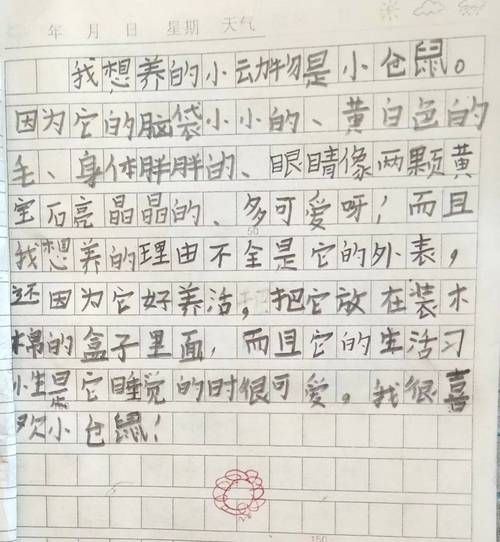 年 月 日 星期 天气
我想养的小动物是小仓鼠。
因为它的脑袋小小的、黄白色的
毛、身体胖胖的、眼睛像两颗黄
宝石亮晶晶的、多可爱呀！而且
我想养的理由不全是它的外表，
还因为它好养活，把它放在装木
棉的盒子里面，而且它的生活习
性是它睡觉的时很可爱，我很喜
欢小仓鼠！